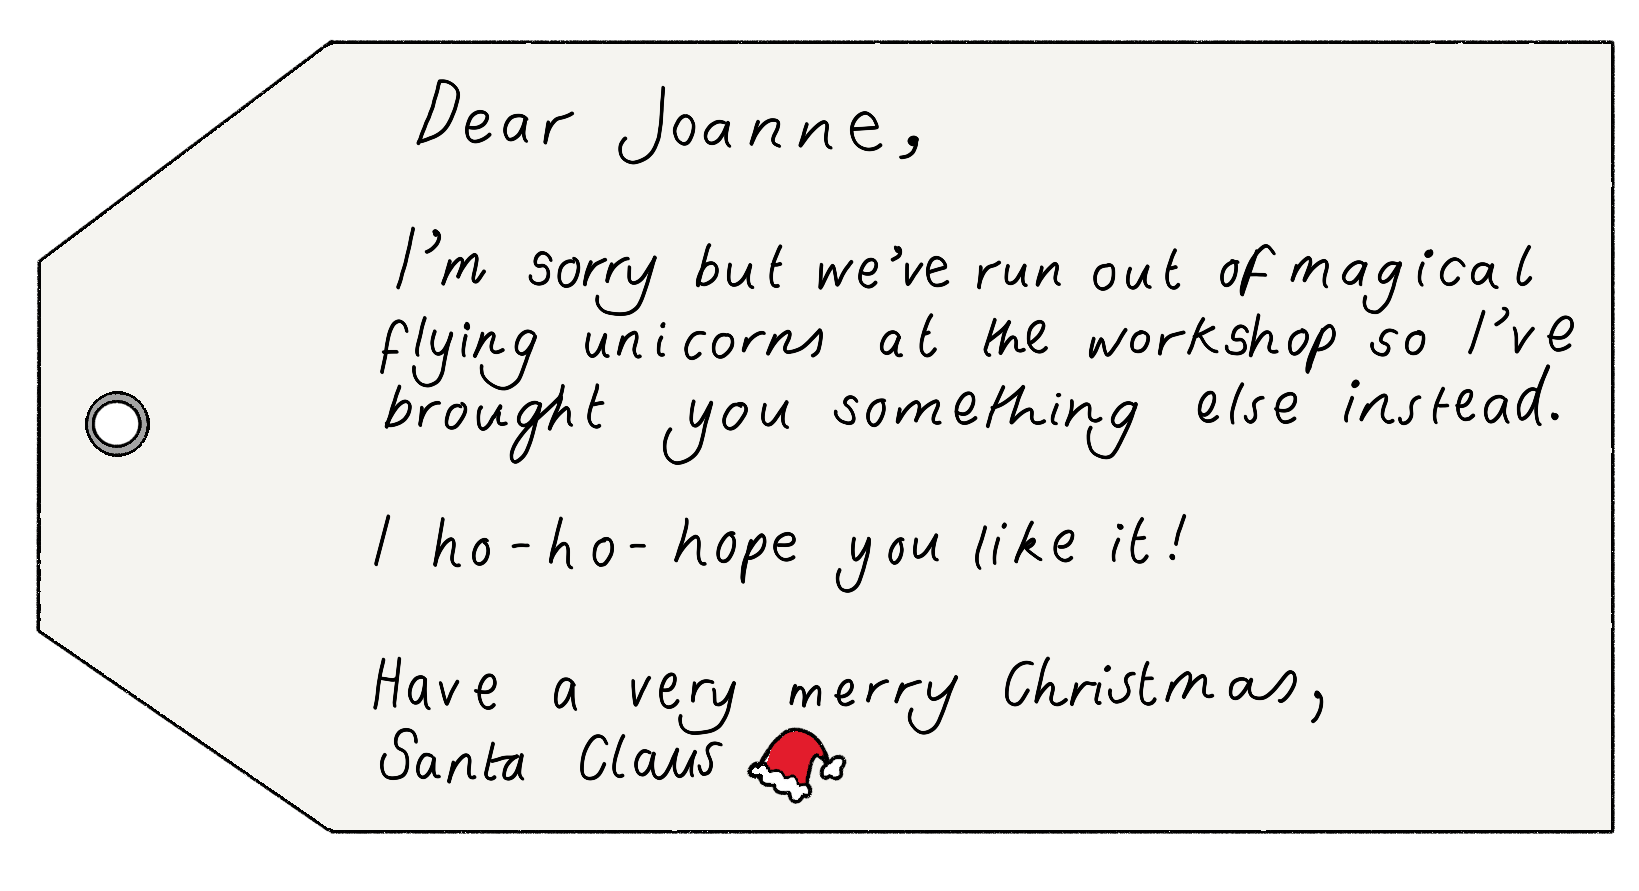 Dear Joanne,
I'm sorry but we've run out of magical
flying unicorns at the workshop so I've
brought you something else instead.
I ho-ho-hope you like it!
Have a very merry Christmas,
Santa Claus